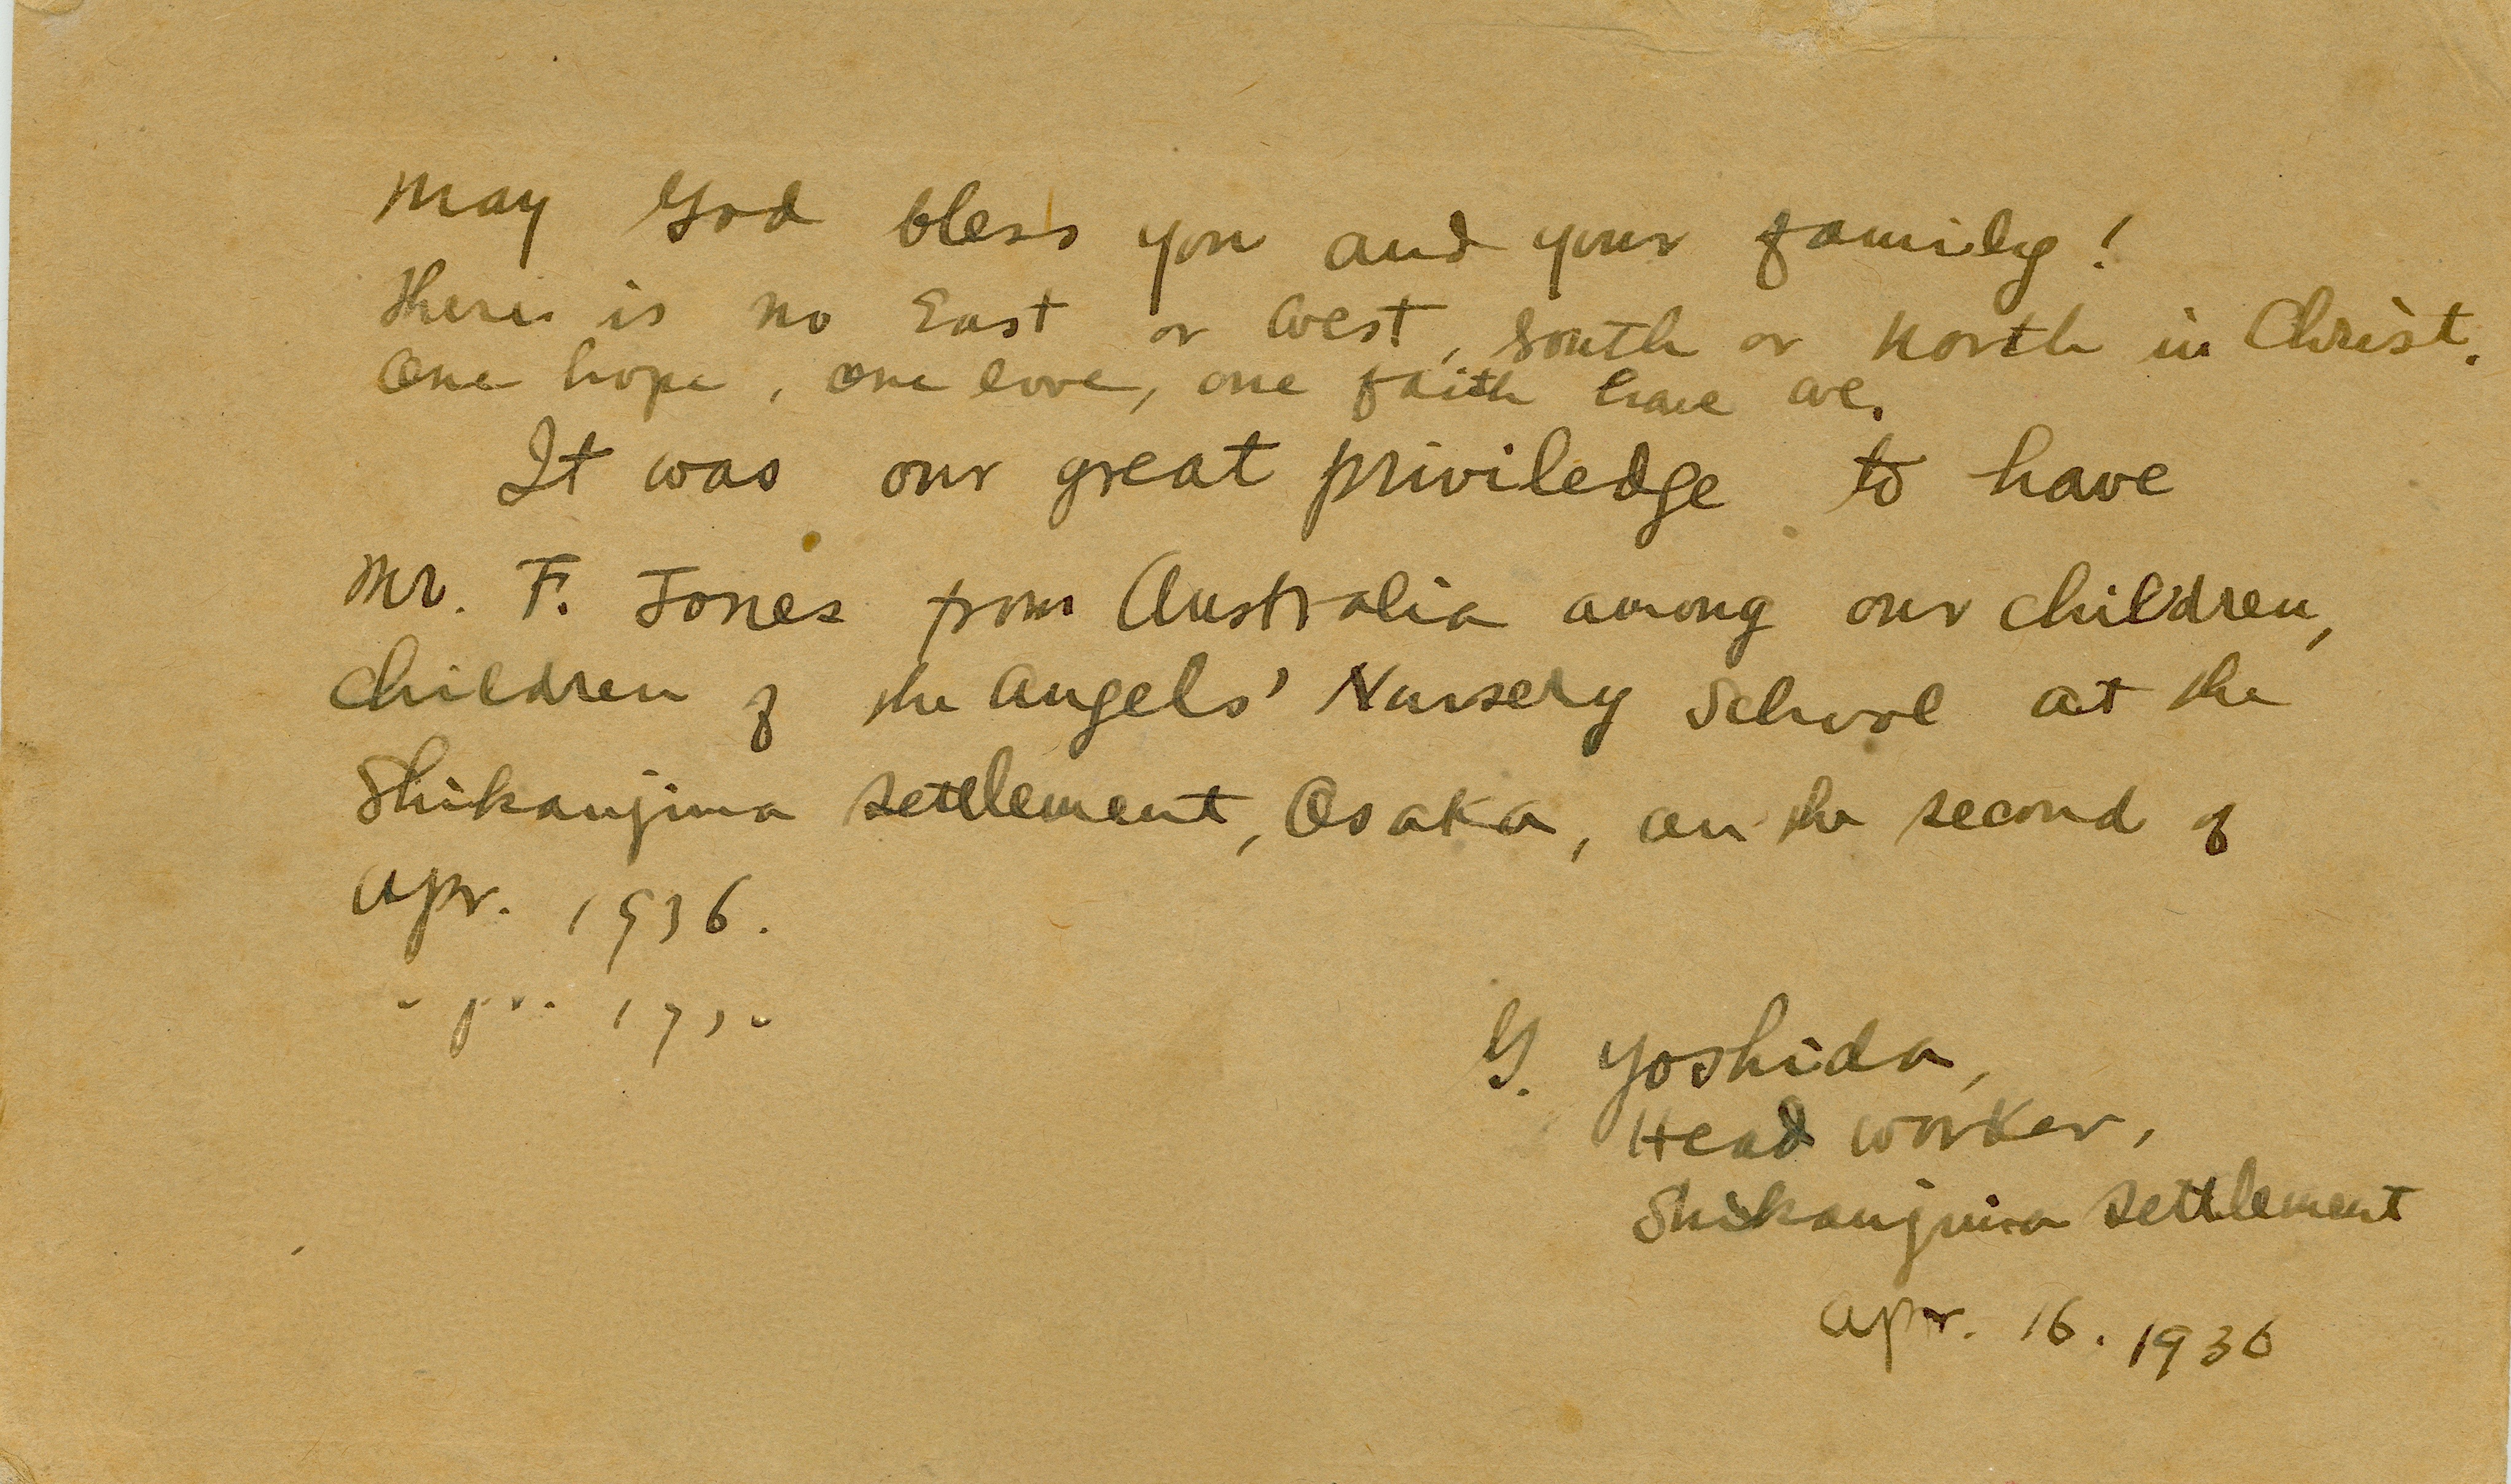 May God bless you and your family!
There is no East or West, South or North in Christ.
One hope, one love, one faith have we.
It was our great priviledge to have
Mr. F. Jones from Australia among our children,
children of the Angels' Nursery School at the
Shikanjima Settlement, Osaka, on the second of
Apr. 1936.
G. Yoshida,
Head worker,
Shikanjima Settlement
Apr. 16. 1936